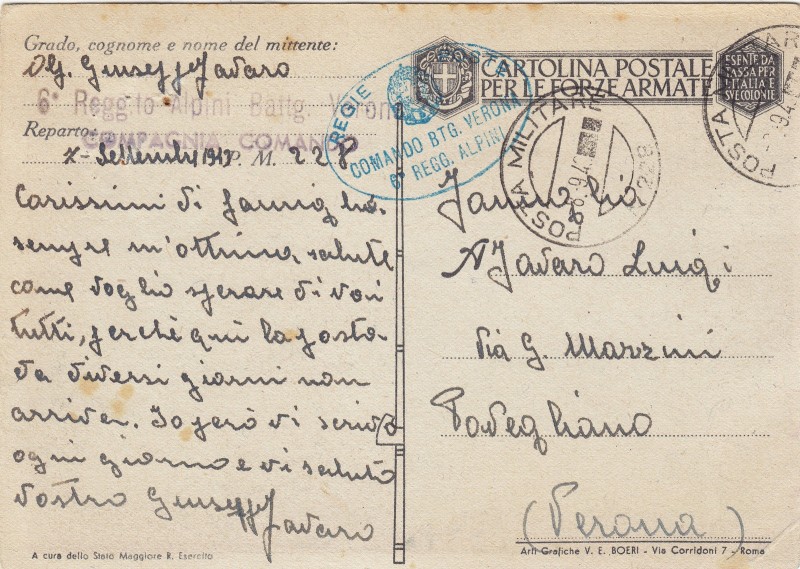 Grado, cognome e nome del mittente:
Giuseppe Favaro
6° Regg.to Alpini Battg. Verona
Reparto:
COMPAGNIA COMANDO
7- Settembre 1943 P. M. 228
Carissimi di famiglia.
sempre m'ottima salute
come voglio sperare di voi
tutti, perchè qui la posta
da diversi giorni non
arriva. Io però vi scrivo
ogni giorno e vi saluto
vostro Giuseppe
Favaro
A cura dello Stato Maggiore R. Esercito
REGIE POSTE
COMANDO BTG. VERONA
6° REGG. ALPINI
CARTOLINA POSTALE
PER LE FORZE ARMATE
ESENTE DA
TASSA PER
L'ITALIA
E LE COLONIE
POSTA MILITARE
N. 228
POSTA MILITARE
Famiglia
Favaro Luigi
via G. Mazzini
Povegliano
(Verona)
Arti Grafiche V. E. BOERI - Via Corridoni 7 - Roma